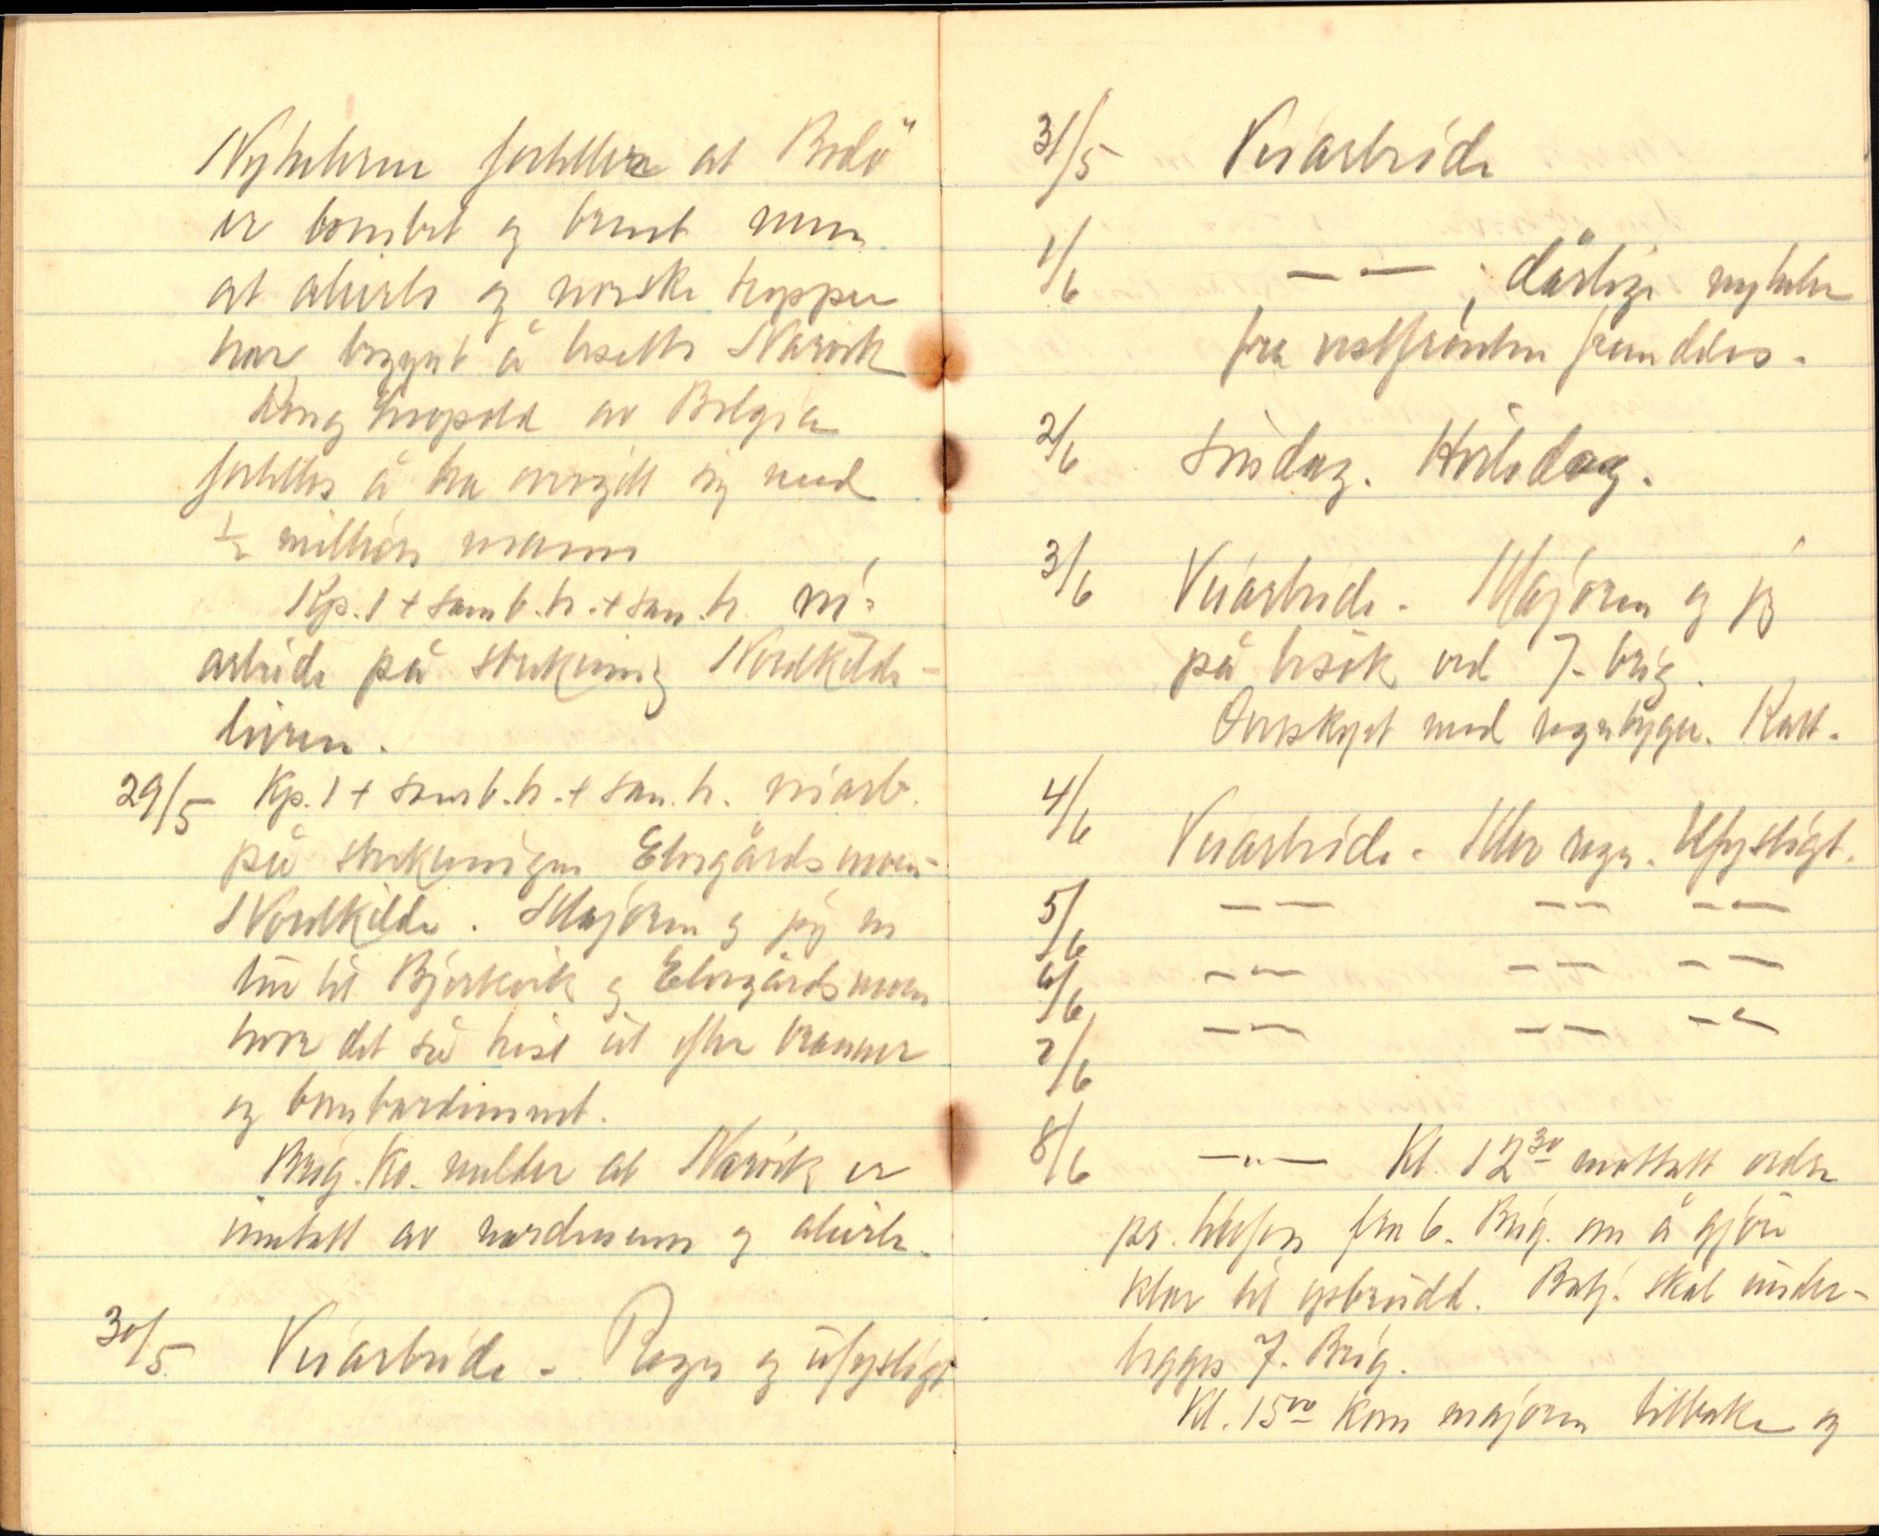 Nyheterne fortellere at Bodö
er bombet og brent men
at alierte og norske tropper
har begynt å besette Narvik
Kong Leopold av Belgia
fortelles å ha overgitt sig med
½ million mann
Kp. 1 + samb.tr. + san.tr. vei-
arbeide på strekning Nordkilde-
leiren.
29/5 Kp. 1 + samb.tr. + san.tr. veiarb.
på strekningen Elvegårdsmoen-
Nordkilde. Majoren og jeg en
tur til Bjerkvik og Elvegårdsmoen
hvor det så trist ut efter branner
og bombardement.
Brig. Ko. melder at Narvik er
inntatt av nordmenn og alierte.
30/5 Veiarbeide - Regn og ufyseligt
31/5 Veiarbeide
1/6 — " — , dårlige nyheter
fra vestfronten fremdeles.
2/6 Söndag. Hviledag.
3/6 Veiarbeide. Majoren og jeg
på besök ved 7. brig.
Overskyet med regnbyger. Kalt.
4/6 Veiarbeide. Mer regn. Ufyseligt.
5/6 — " — — " — — " —
6/6 — " — — " — — " —
7/6 — " — — " — — " —
8/6 — " — Kl. 12³⁰ mottatt ordre
pr. telefon fra 6. Brig. om å gjöre
klar til opbrudd. Batj. skal under-
legges 7. Brig.
Kl. 15⁰⁰ kom majoren tilbake og